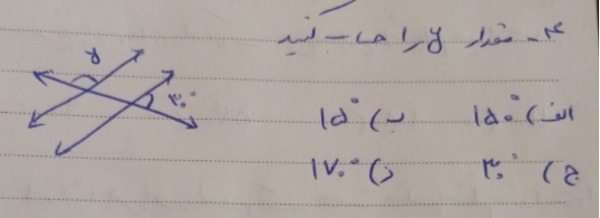 ۴- مقدار y را حساب کنید
y
۳۰°
الف) ۱۵۰° ب) ۱۵°
ج) ۳۰° د) ۱۷۰°